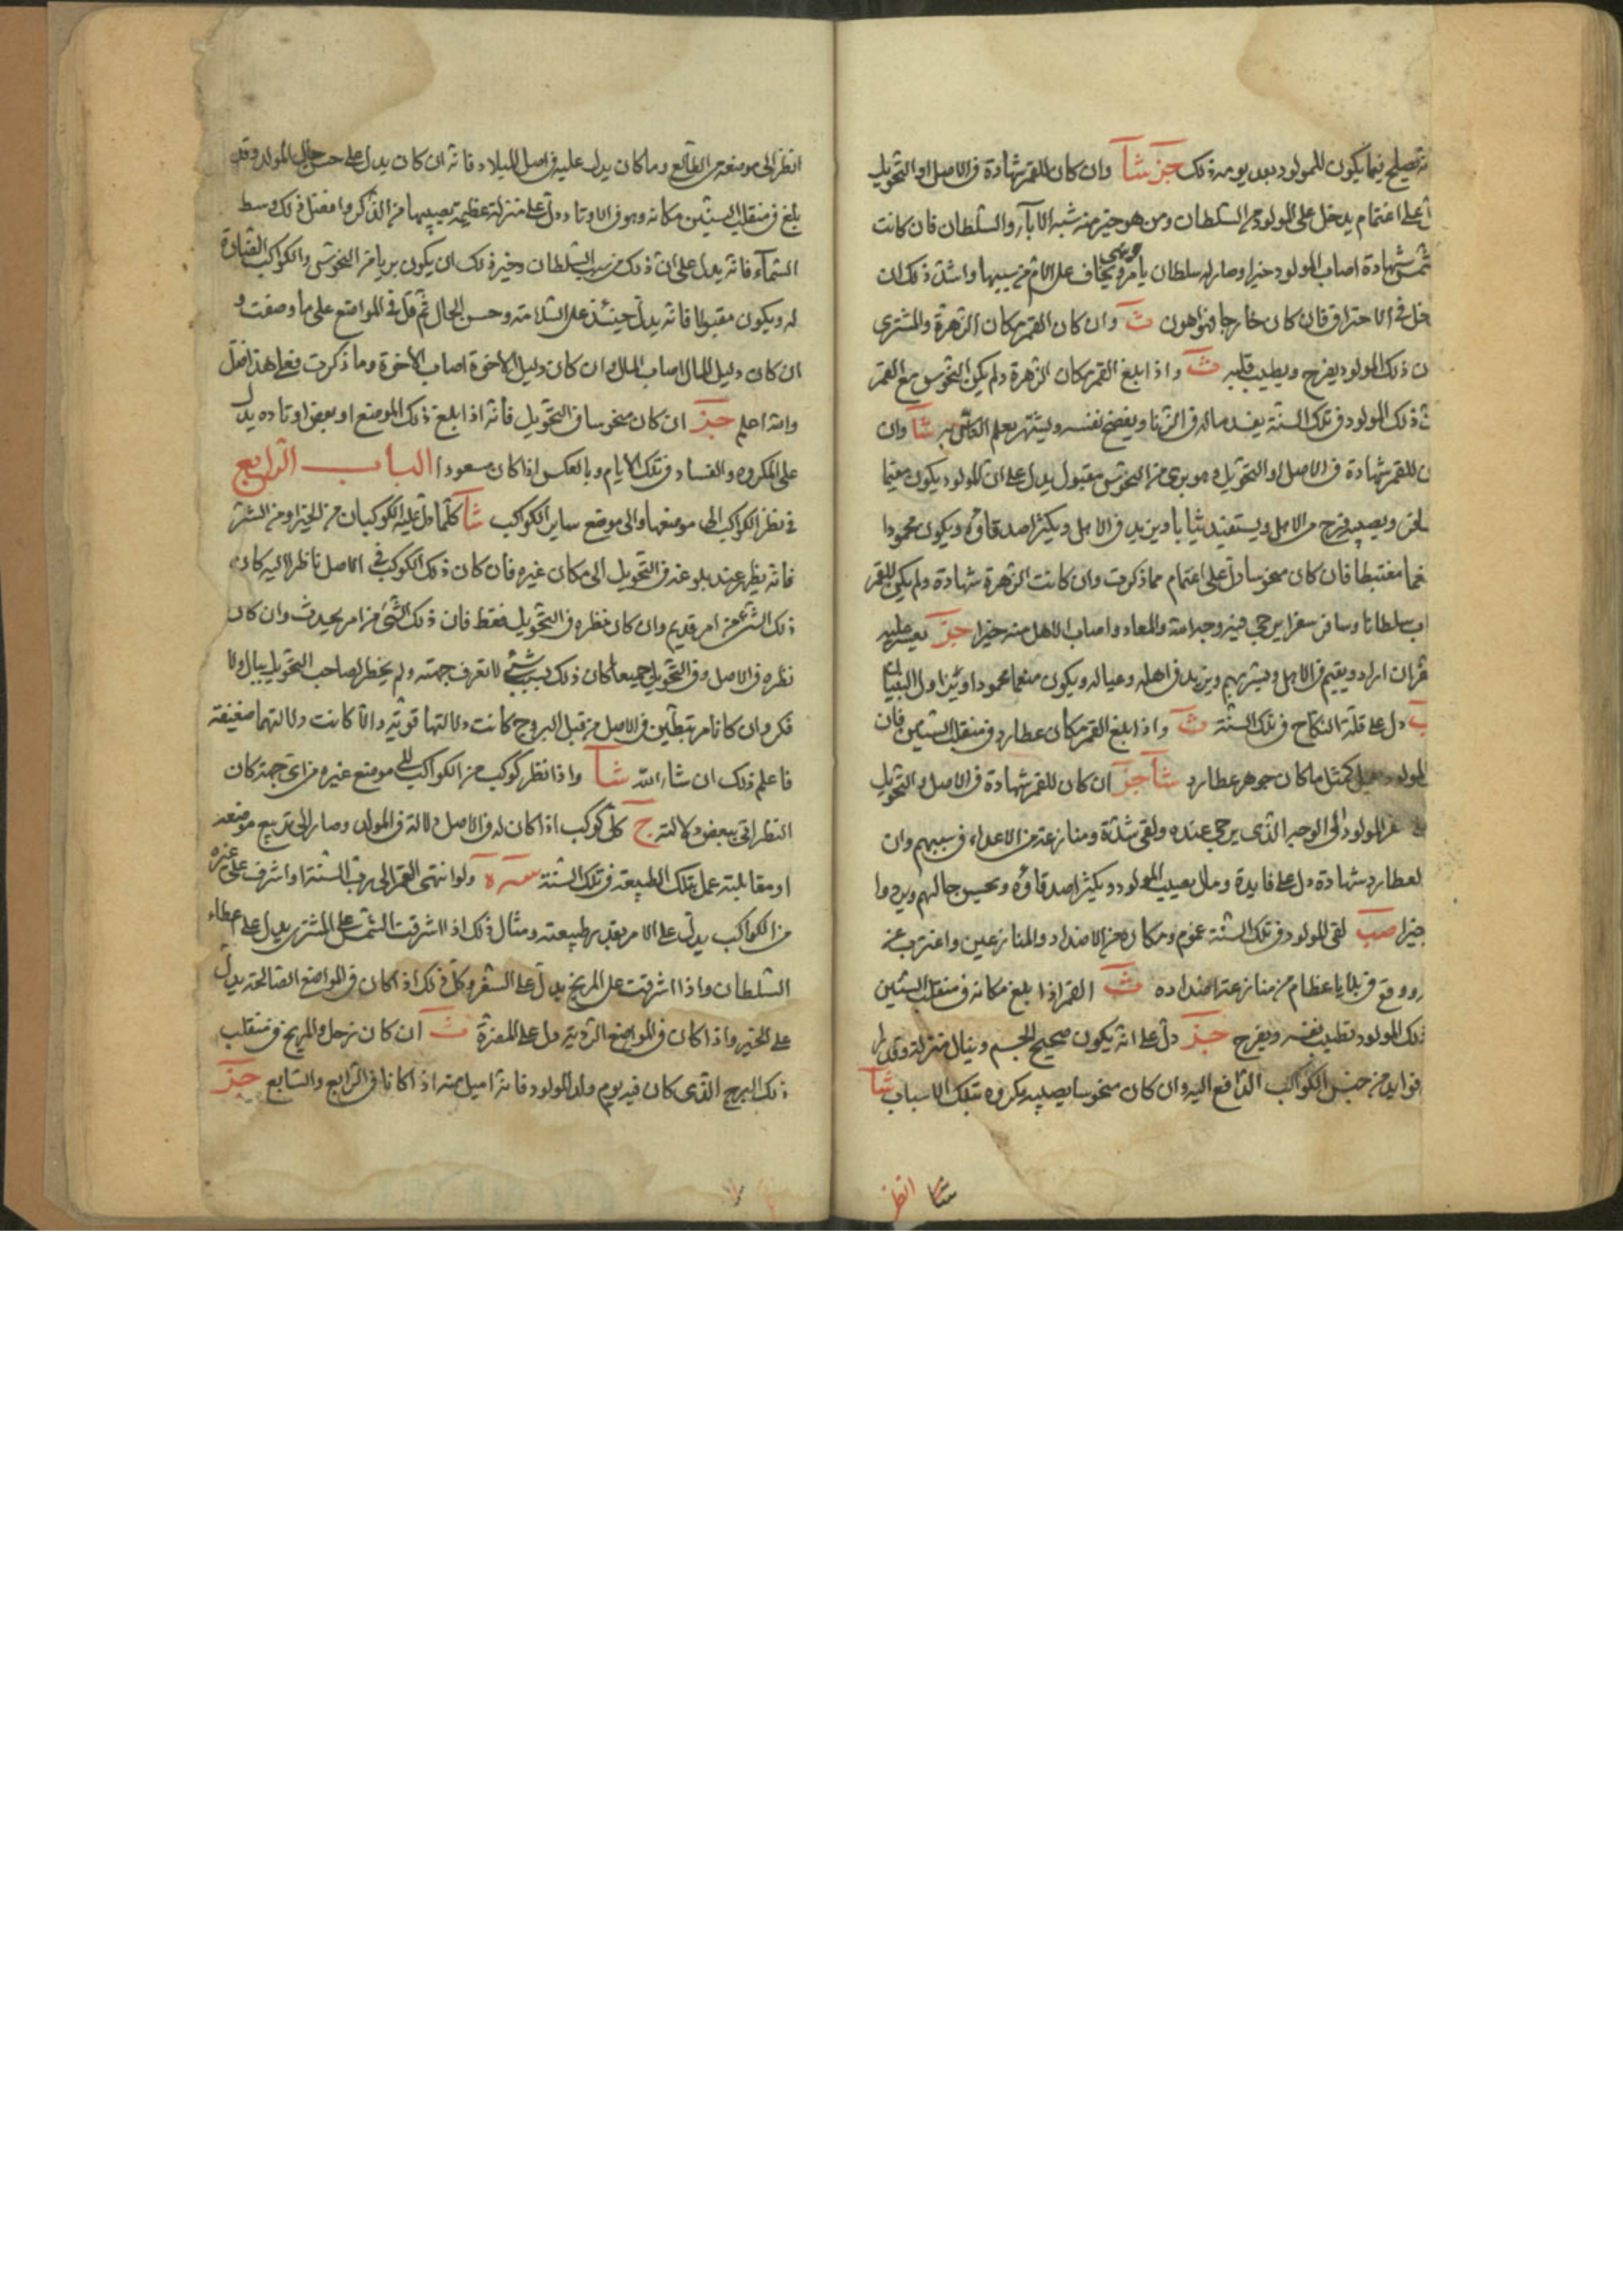 فيما يكون للمولود بعد يومه ذلك جز شا وان كان للقمر شهادة فى الاصل او التحويل
على اغتمام يدخل على المولود من السلطان ومن هو خير منه شبه الاباء والسلطان فان كانت
شهادة اصاب المولود خيرا وصار له سلطان يامر وينهى ويخاف على الام من سببها واشد ذلك ان
فى الاحتراق فان كان خارجا فهو اهون ث وان كان القمر مكان الزهرة والمشترى
ن ذلك المولود يفرح ويطيب قلبه ث واذا بلغ القمر مكان الزهرة ولم يكن النحوس مع القمر
ذلك المولود فى تلك السنة يفسد ماله فى الزنا ويفضح نفسه ويشتهر بعلم الناس به شا وان
ن للقمر شهادة فى الاصل او التحويل وهو برى من النحوس مقبول يدل على ان المولود يكون مقيما
ويصيبه فرح من الاهل ويستفيد ثيابا ويزيد فى الاهل ويكثر اصدقاؤه ويكون محمودا
مغتبطا فان كان منحوسا دل على اغتمام مما ذكرت وان كانت الزهرة شهادة ولم يكن للقمر
سلطانا وسافر سفرا يرجى فيه وجد امة والمعاد واصاب الاهل منه خيرا جز يعسر عليه
ان اراد ويقيم فى الاهل ويشربهم ويزيد فى اهله وعياله ويكون منعما محمودا ويزاول البقيان
دل على قلة النكاح فى تلك السنة ث واذا بلغ القمر مكان عطارد فى منقلب السنين فان
المولود كمثل ما كان جوهر عطارد شا جز ان كان للقمر شهادة فى الاصل او التحويل
المولود الى الوجه الذى يرجى عنده ولقى شدة ومنازعة من الاعداء فى سببهم وان
لعطارد شهادة دل على فايدة ومال يصيب المولود ويكثر اصدقاؤه ويحسن حالهم ويردوا
خيرا صب لقى المولود فى تلك السنة غموم ومكاره من الاضداد والمنازعين واغترب عن
ووقع فى بلايا عظام من منازعة اضداده ث القمر اذا بلغ مكانه فى منقلب السنين
ذلك المولود تطيب نفسه ويفرح جز دل على انه يكون صحيح الجسم وينال منزلة وقدرا
فوايد من جنس الكواكب الدافع اليه وان كان منحوسا يصيبه مكروه بتلك الاسباب شا
شا انظر
انظر الى موضعه من الطالع وما كان يدل عليه فى اصل الميلاد فانه ان كان يدل على حسن حال المولد وقد
بلغ فى منقلب السنين مكانه وهو فى الاوتاد دل على منزلة عظيمة يصيبها من الذكر وافضل ذلك وسط
السماء فانه يدل على ان ذلك من سبب السلطان وخير ذلك ان يكون بريا من النحوس والكواكب المضادة
له ويكون مقبولا فانه يدل حينئذ على السلامة وحسن الحال ثم قل فى المواضع على ما وصفت و
ان كان دليل المال اصاب المال وان كان دليل الاخوة اصاب الاخوة وما ذكرت فعلى هذا فقل
والله اعلم جز ان كان منحوسا فى التحويل فانه اذا بلغ ذلك الموضع او بعض اوتاده يدل
على المكروه والفساد فى تلك الايام وبالعكس اذا كان مسعودا الباب الرابع
فى نظر الكواكب الى مواضعها والى موضع ساير الكواكب شا كلما دل عليه الكوكبان من الخير او من الشر
فانه يظهر عند بلوغه فى التحويل الى مكان غيره فان كان ذلك الكوكب فى الاصل ناظرا اليه كان
ذلك الشر من امر قديم وان كان نظره فى التحويل فقط فان ذلك الشئ من امر يحدث وان كان
نظره فى الاصل وفى التحويل جميعا كان ذلك بسبب شئ لا تعرف جهته ولم يخطر لصاحب التحويل ببال ولا
فكر وان كانا مرتبطين فى الاصل من قبل البروج كانت دلالتها قوية والا كانت دلالتهما ضعيفة
فاعلم ذلك ان شاء الله شا واذا نظر كوكب من الكواكب الى موضع غيره من اى جهة كان
النظر اتى ببعض دلالته ج كل كوكب اذا كان له فى الاصل دلالة فى المولد وصار الى تربيع موضعه
او مقابلته عمل بتلك الطبيعة فى تلك السنة سره ولو انتهى القمر الى رب السنة او اشرف على غيره
من الكواكب يدل على الامر بقدر طبيعته ومثال ذلك اذا اشرقت الشمس على المشترى يدل على عطاء
السلطان واذا اشرقت على المريخ يدل على السفر وكل ذلك اذا كان فى المواضع الصالحة يدل
على الخير واذا كان فى المواضع الردية دل على المضرة ث ان كان زحل والمريخ فى منقلب
ذلك البرج الذى كان فيه يوم ولد المولود فانه اميل منه اذا كانا فى الرابع والسابع جز